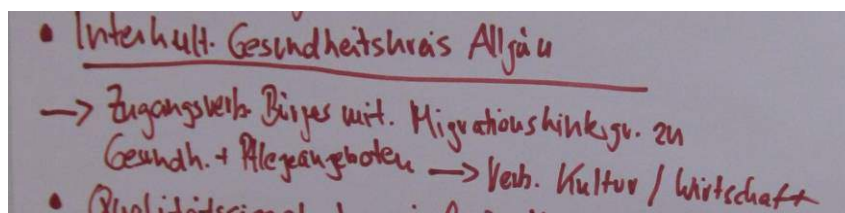 • Interkult. Gesundheitskreis Allgäu
→ Zugangsverb. Bürger mit. Migrationshintergr. zu
Gesundh. + Pflegeangeboten → Verb. Kultur / Wirtschaft